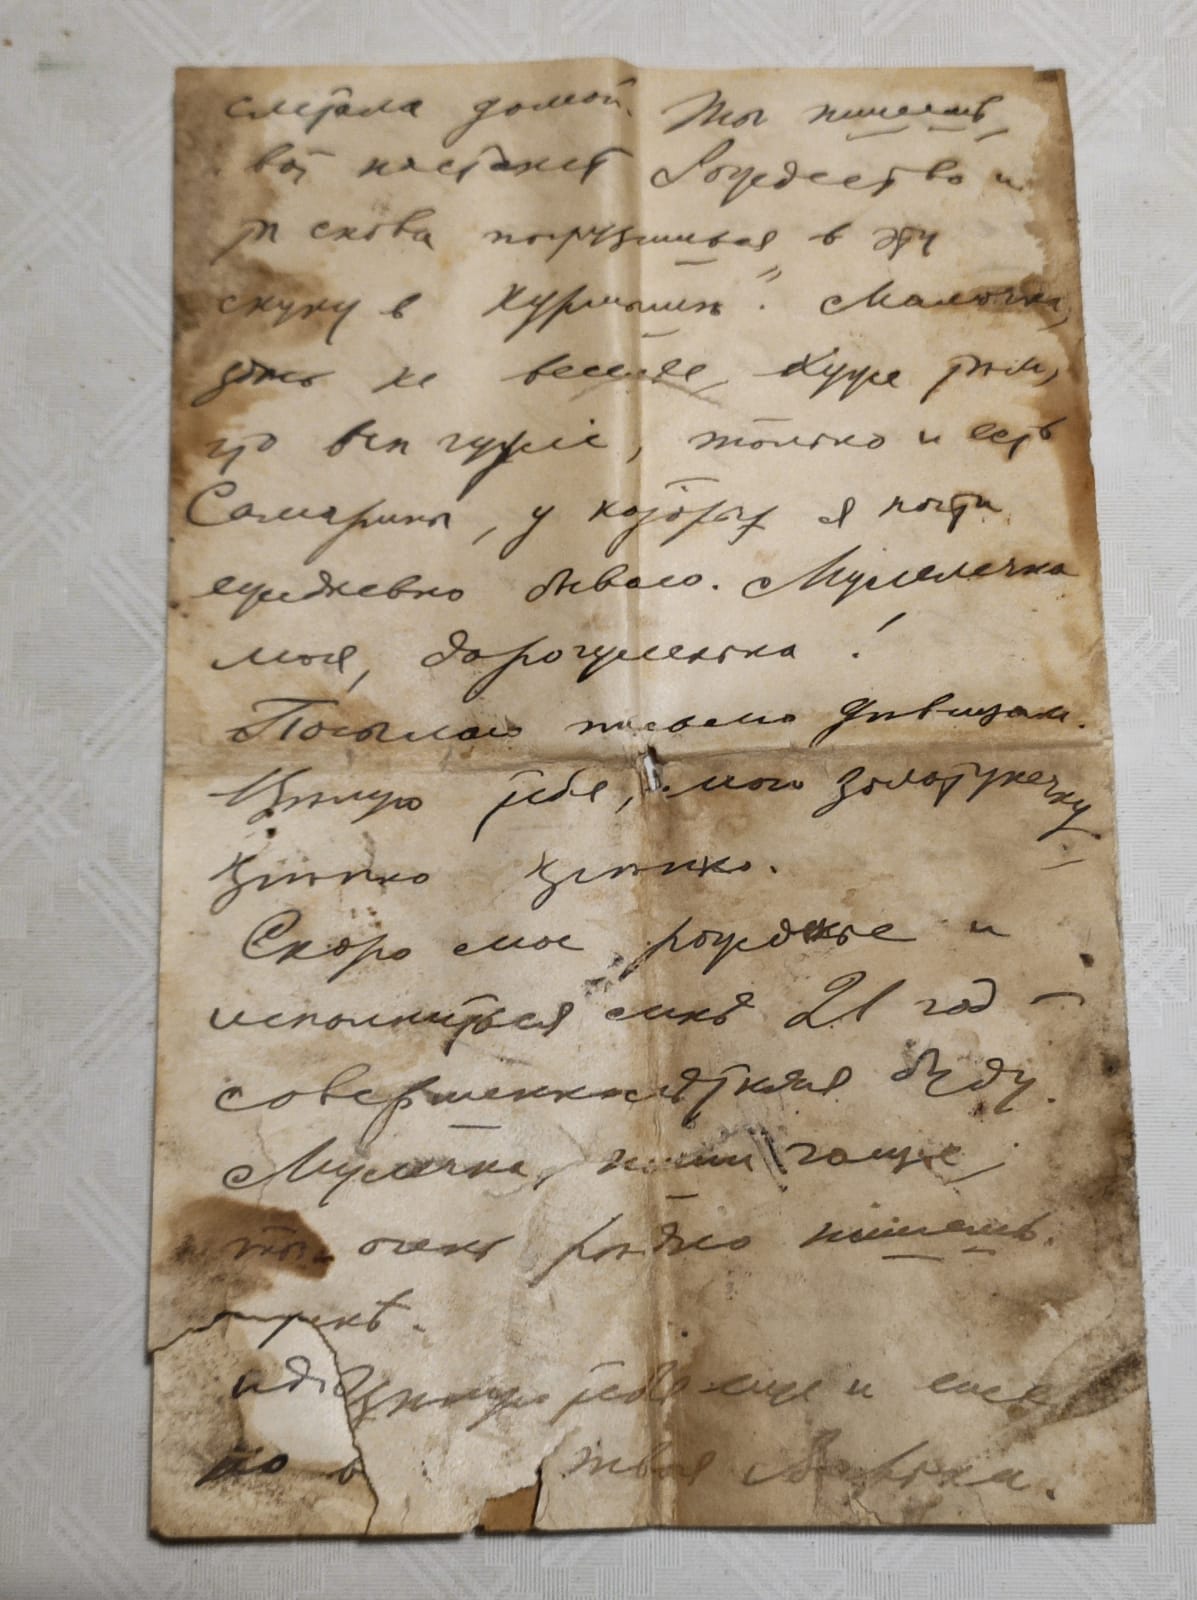 слетала домой. Ты пишешь,
"вот настанет Рождество и
ты снова погрузишься в эту
скуку в Курмыше". Мамочка,
здесь не веселее, хуже тем,
что все чужие, только и есть
Самарины, у которых я почти
ежедневно бываю. Мулечка
моя, дорогуленька!
Посылаю письмо девицам.
Целую тебя, мою золотунечку
крепко крепко.
Скоро мое рожденье и
исполнится мне 21 год –
совершеннолѣтняя буду.
Мулечка, пиши чаще,
ты очень редко пишешь.
Целую тебя еще и еще
твоя